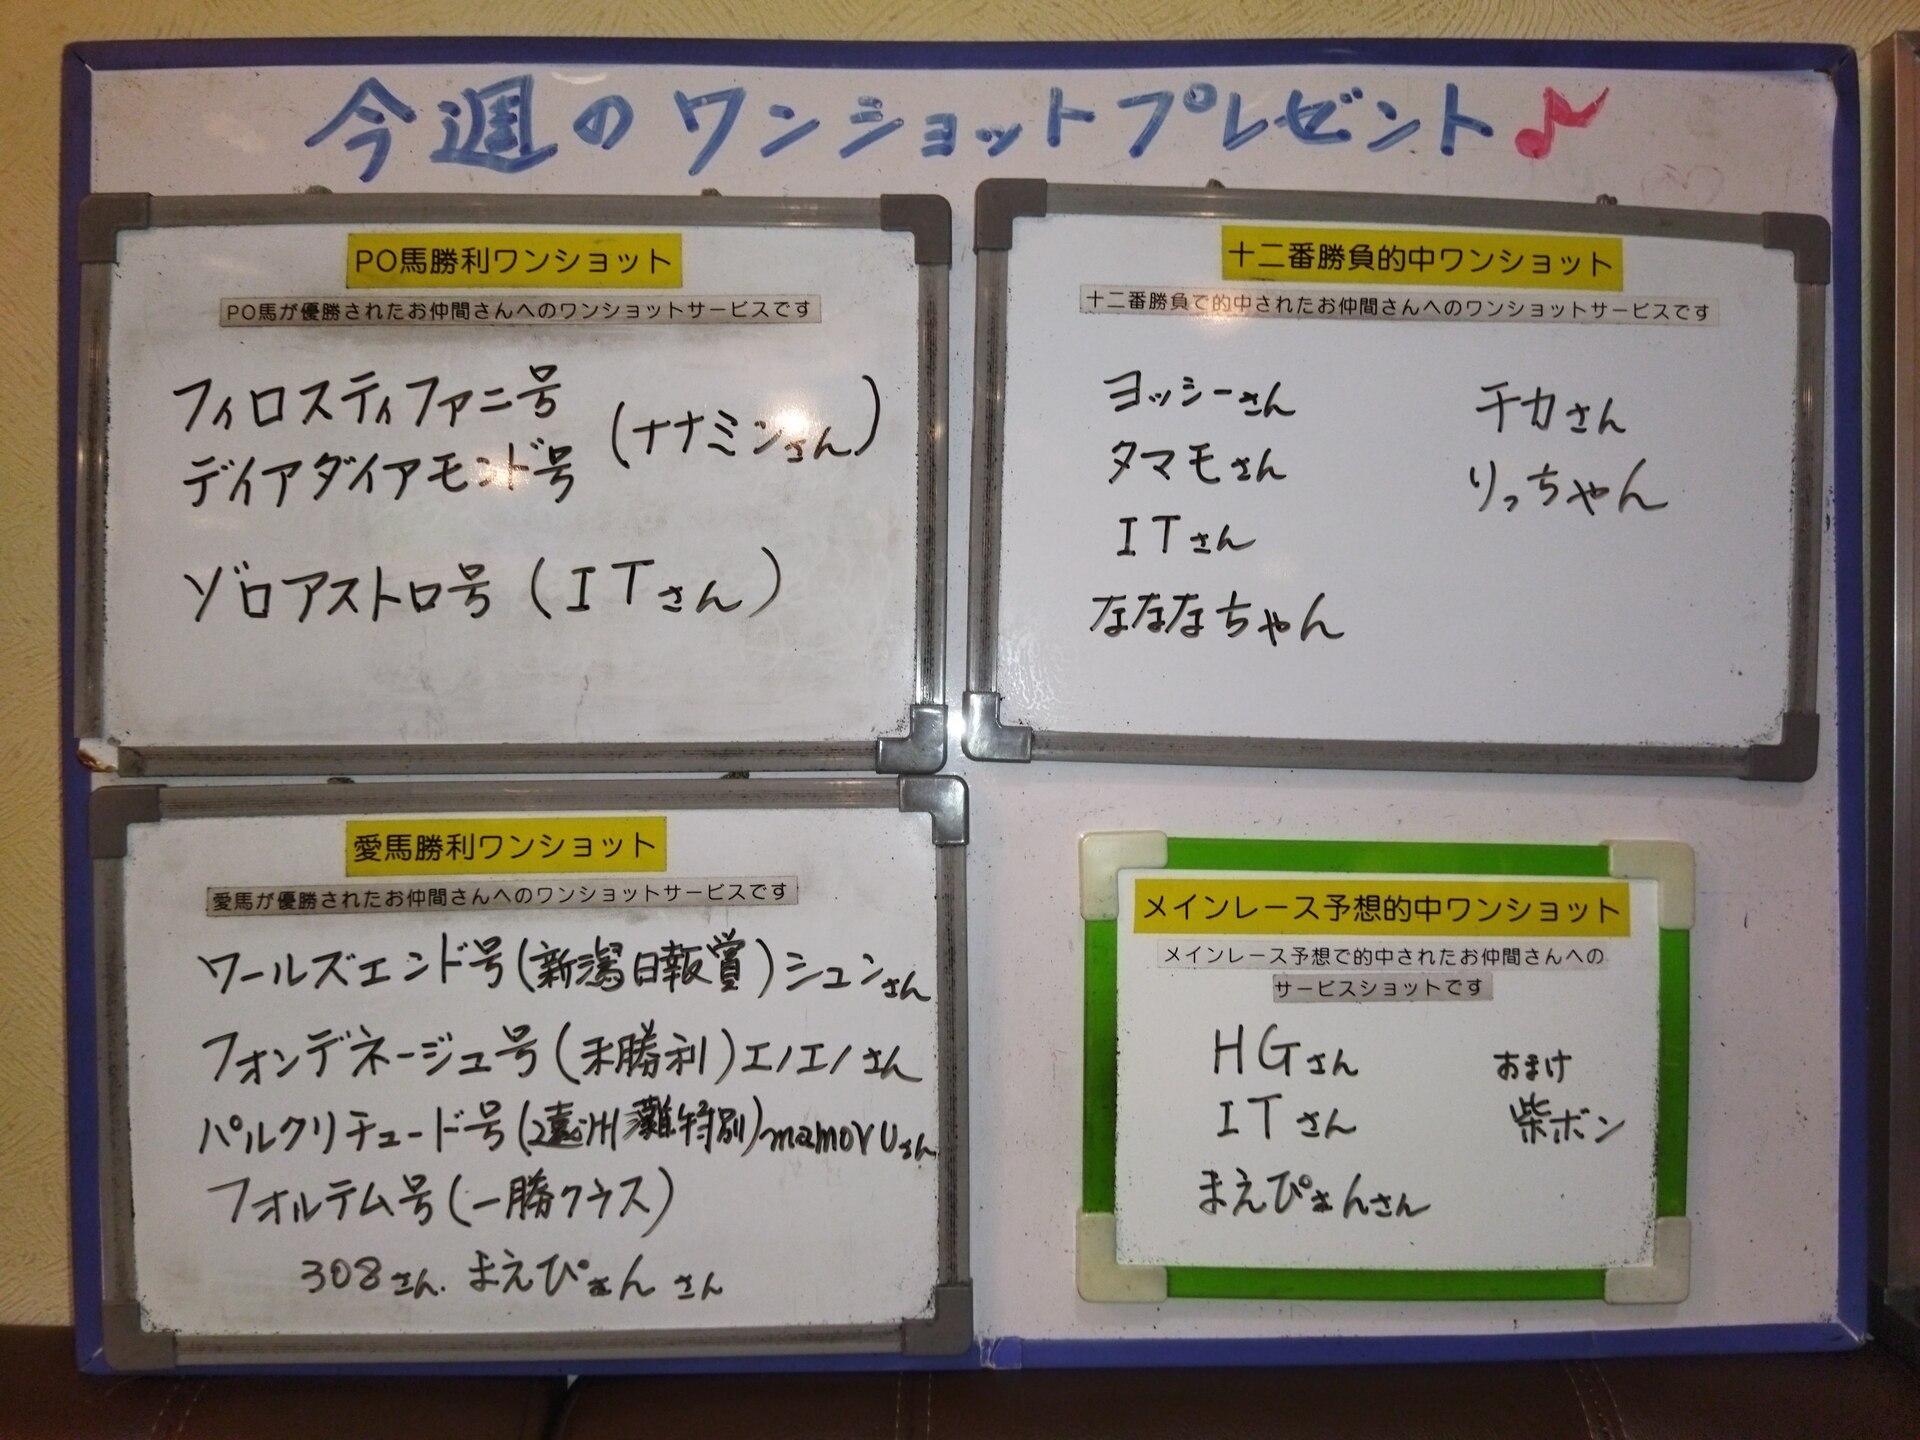 今週のワンショットプレゼント♪
PO馬勝利ワンショット
PO馬が優勝されたお仲間さんへのワンショットサービスです
フィロスティファニ号
デイアダイアモンド号
(ナナミンさん)
ゾロアストロ号(ITさん)
十二番勝負的中ワンショット
十二番勝負で的中されたお仲間さんへのワンショットサービスです
ヨッシーさん
タマモさん
ITさん
なななちゃん
チカさん
りっちゃん
愛馬勝利ワンショット
愛馬が優勝されたお仲間さんへのワンショットサービスです
ワールズエンド号(新潟日報賞)シュンさん
フォンデネージュ号(未勝利)エノエノさん
パルクリチュード号(遠州灘特別)mamoruさん
フォルテム号(一勝クラス)
308さん.まえぴょんさん
メインレース予想的中ワンショット
メインレース予想で的中されたお仲間さんへの
サービスショットです
HGさん
ITさん
まえぴょんさん
おまけ
柴ボン